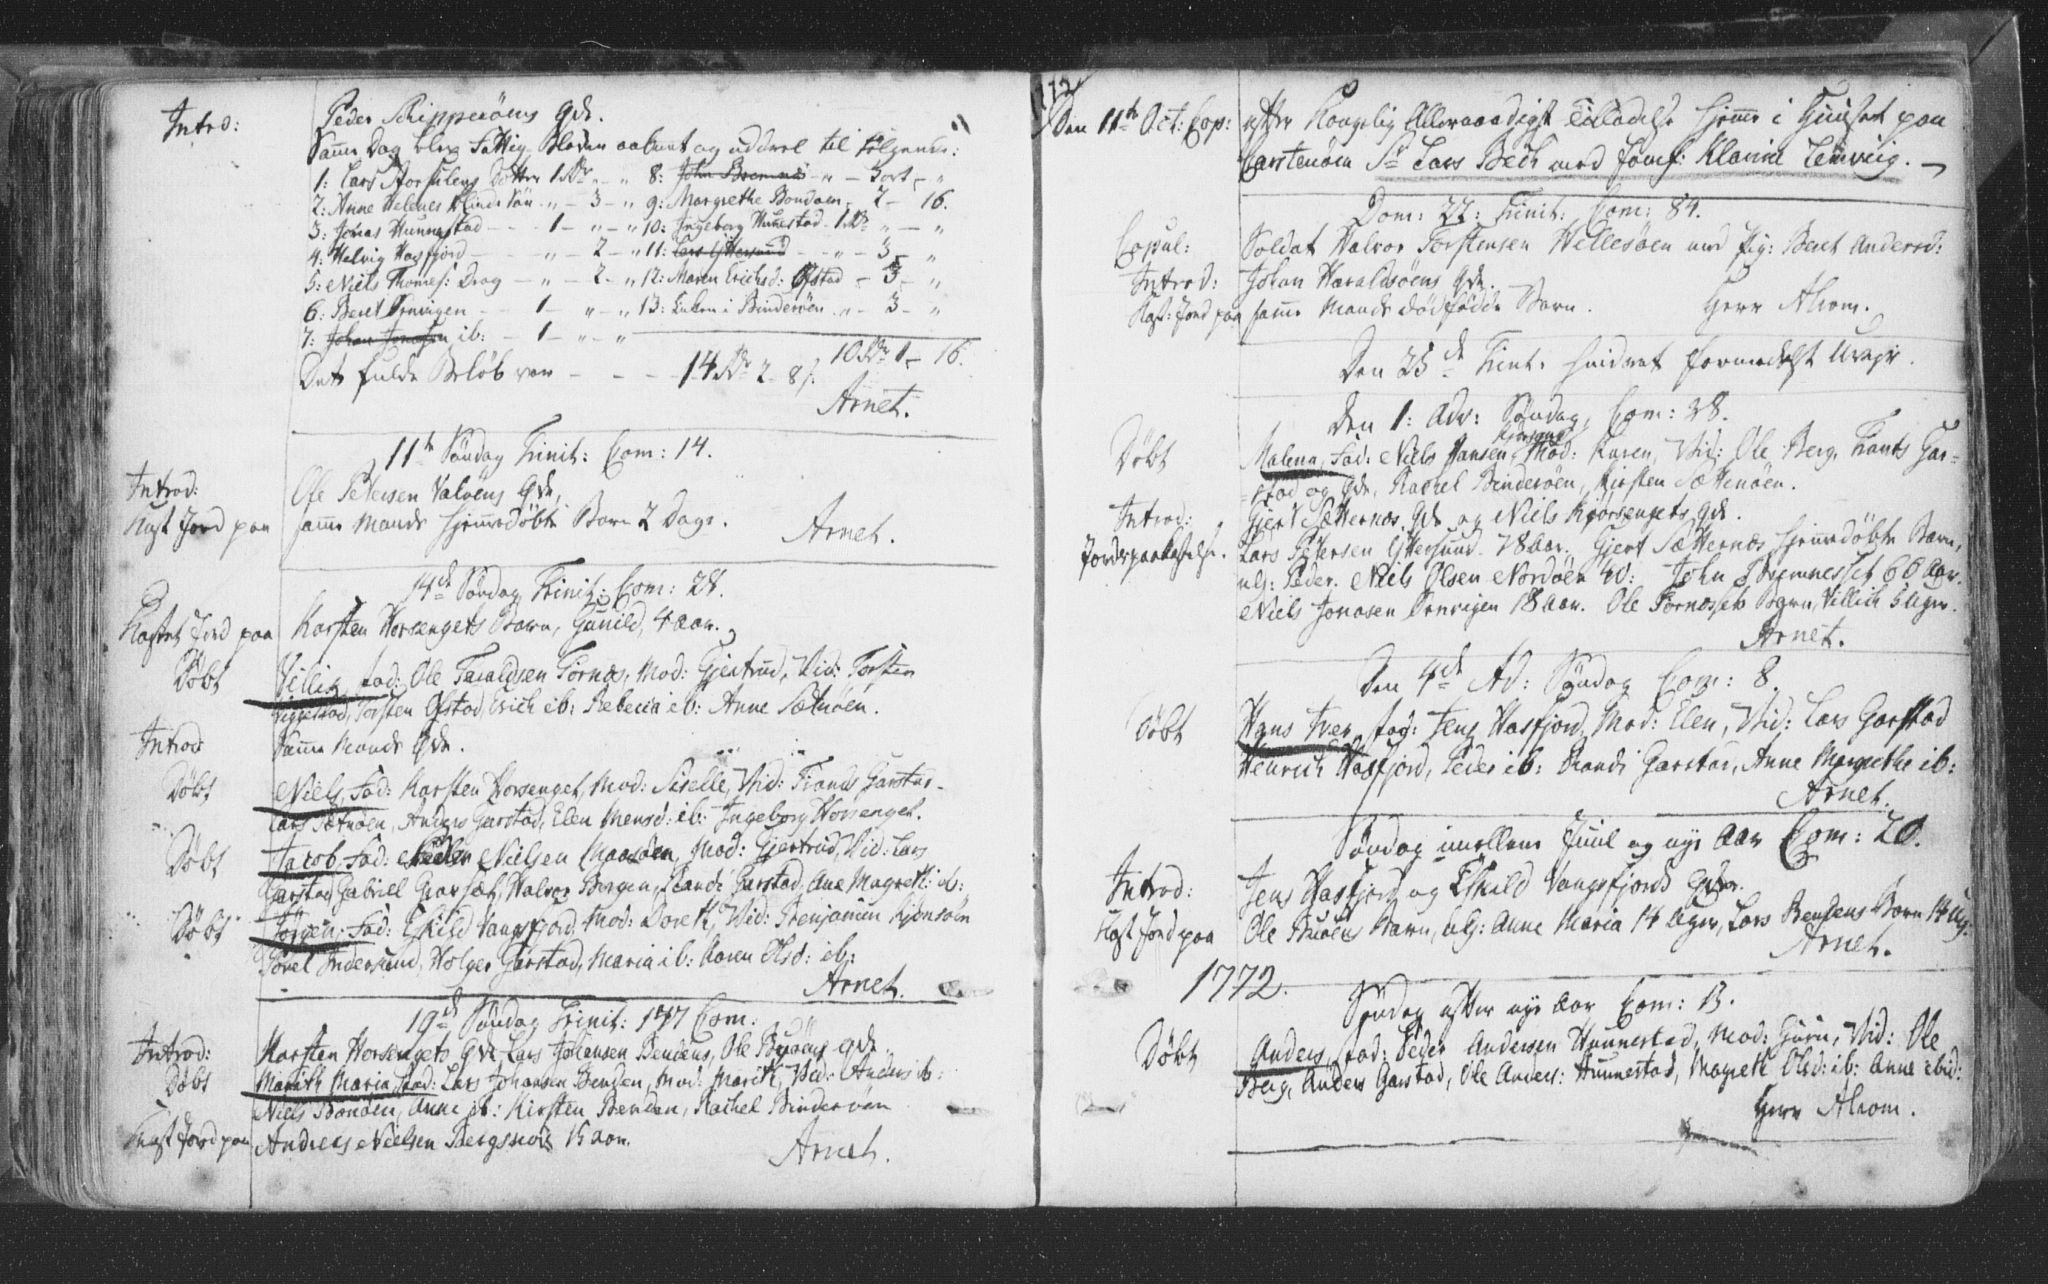 Introd: Peder Skipperöens Qde.
Samme Dag blev Fattig Bløcken aabnet og uddeel til Følgende:
1: Lars Dotter 1 Rdr „ „ 8: John Bremnes „ – 3 ort – „
2: Anne Helenes blinde Søn „ – 3 – „ 9: Margrethe Bondøen – 2 – 16.
3: Jonas Hunnestad – – 1 – „ – „ 10: Ingeborg Hunestad 1 Rdr „ – „
4: Helvig Hasfjord – – „ – 2 – „ 11: Lars Yttersund – – „ – 3 – „
5: Niels Thomes: Drag – „ – 2 – „ 12: Maren Erichsd: Ofstad – 3 – „
6: Beret Ornvigen – – 1 – „ – „ 13: Enken i Binderöen „ – 3 – „
7: Johan Jonassen ib: – 1 – „ – „
10 Rdr 1 – 16.
Det fulde Beløb var – – – 14 Rdr 2 – 8 s.
Arnet.
11te Söndag Trinit: Com: 14.
Introd: Ole Petersen Valöens Qde,
Kast Jord paa samme Mands hjemmedöbte Barn 2 Dage. Arnet.
14de Söndag Trinit: Com: 28.
Kastet Jord paa Karsten Horsengets Barn, Gunild, 4 aar.
Döbt Villig, Fad: Ole Taraldsen Tornæs, Mod: Gjertrud, Vid: Torsten
Torsten Ofstad, Erich ib: Rebecca ib: Anne Sætnöen.
Introd Samme Mands Qde.
Döbt Niels, Fad: Karsten Horsenget, Mod: Siselle, Vid: Frands Garstad
Lars Sætnöen, Anders Garstad, Elen Mensd: ib: Ingeborg Horsenget.
Döbt Jacob, Fad: Peder Nielsen Maasöen, Mod: Gjertrud, Vid: Lars
Garstad, Gabriel Garset, Halvor Bergen, Randi Garstad, Ane Magreth: ib:
Döbt Jörgen, Fad: Eskild Vangsfjord, Mod: Doreth, Vid: Benjamin
Povel Indersund, Holger Garstad, Maria ib: Karen Olsd: ib:
Arnet.
19de Söndag Trinit: 177 Com:
Introd: Karsten Horsengets Qde, Lars Johansen Bendens, Ole Buöens Qde.
Döbt Marith Maria, Fad: Lars Johansen Benden, Mod: Marith, Vid: Anders ib:
Niels Bondöen, Anne ib: Kirsten Benden, Rachel Binderöen
Kast Jord paa Andreas Nielsen Bergsnov 15 aar.
Arnet.
1772
Den 11te Oct: Cop: efter Kongelig Allernaadigst Tilladelse hjemme i Huuset paa
Carstenöen Sr Lars Bech med Jomf: Klarine Lemvig. –
Dom: 22: Trinit: Com: 84.
Copul: Soldat Halvor Torstensen Hellesöen med Pig: Beret Andersd:
Introd: Johan Haraldsöens Qde.
Kast: Jord paa samme Mands dødfødde Barn. Herr Alrom.
Den 25de Trinit: hindret formedelst Uvejr.
Den 1: Adv: Söndag, Com: 38.
Döbt Malena, Fad: Niels Hansen Kjörsenget, Mod: Karen, Vid: Ole Berg, Frants Gar-
stad og Qde, Rachel Binderöen, Kirsten Sættenöen.
Introd: Gjert Sætternæs Qde og Niels Kjörsengets Qde.
Jordspaakastelse. Lars Petersen Yttersund 78 aar. Gjert Sætternæs hjemmedöbte Barn,
nlg: Peder. Niels Olsen Nordöen 40: John Bremnesset 66 aar.
Niels Jonasen Ornvigen 18 aar. Ole Tornæssets Barn, Villich 5 Uger.
Arnet.
Den 4de Ad: Söndag Com: 8.
Döbt Hans Iver, Fad: Jens Hasfjord, Mod: Elen, Vid: Lars Garstad
Henrich Hasfjord, Peder ib: Randi Garstad, Anne Magrethe ib:
Arnet.
Söndag imellem Juul og nyt Aar Com: 20.
Introd: Jens Hasfjord og Eskild Vangsfjords Qder.
Kast Jord paa Ole Buöens Barn, nlg: Anne Maria 14 Uger, Lars Bendens Barn 14 Ug:
Arnet.
1772.
Söndag efter nyt Aar Com: 13.
Döbt Anders, Fad: Peder Andersen Hunnestad, Mod: Guru, Vid: Ole
Berg, Anders Garstad, Ole Anders: Hunnestad, Magreth Olsd: ib: Anne ibid:
Herr Alrom.